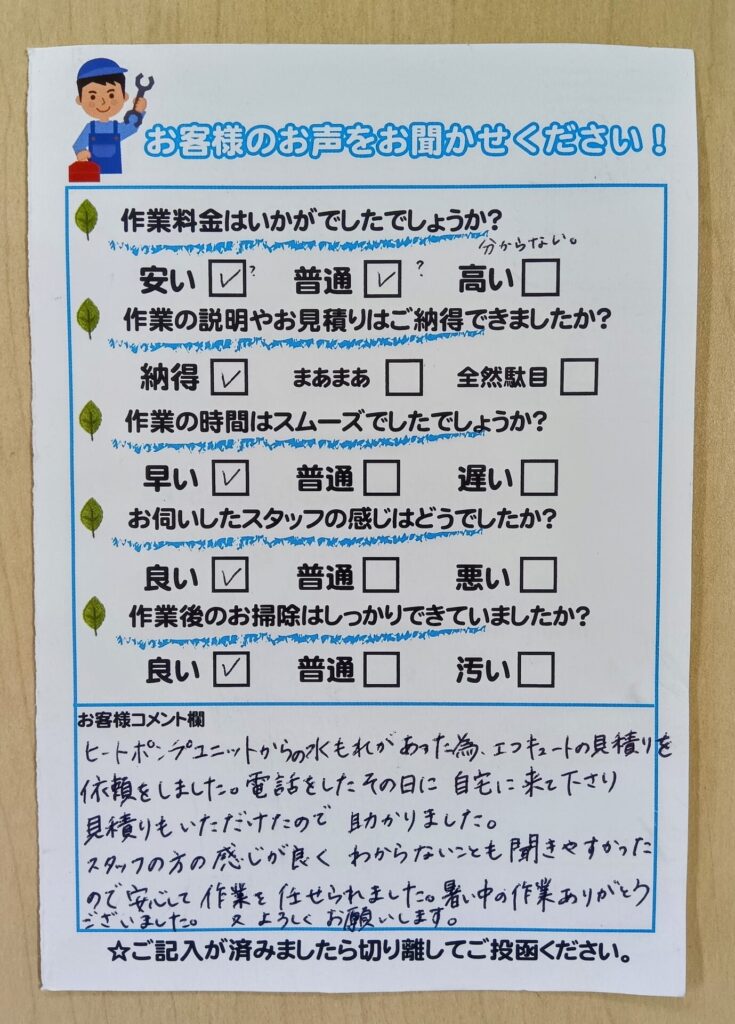 お客様のお声をお聞かせください！
作業料金はいかがでしたでしょうか?
分からない。
安い ✓? 普通 ✓? 高い
作業の説明やお見積りはご納得できましたか?
納得 ✓ まあまあ 全然駄目
作業の時間はスムーズでしたでしょうか?
早い ✓ 普通 遅い
お伺いしたスタッフの感じはどうでしたか?
良い ✓ 普通 悪い
作業後のお掃除はしっかりできていましたか?
良い ✓ 普通 汚い
お客様コメント欄
ヒートポンプユニットからの水もれがあった為、エコキュートの見積りを
依頼をしました。電話をしたその日に 自宅に来て下さり
見積りもいただけたので 助かりました。
スタッフの方の感じが良く わからないことも聞きやすかった
ので安心して作業を任せられました。暑い中の作業ありがとう
ございました。 又よろしくお願いします。
☆ご記入が済みましたら切り離してご投函ください。